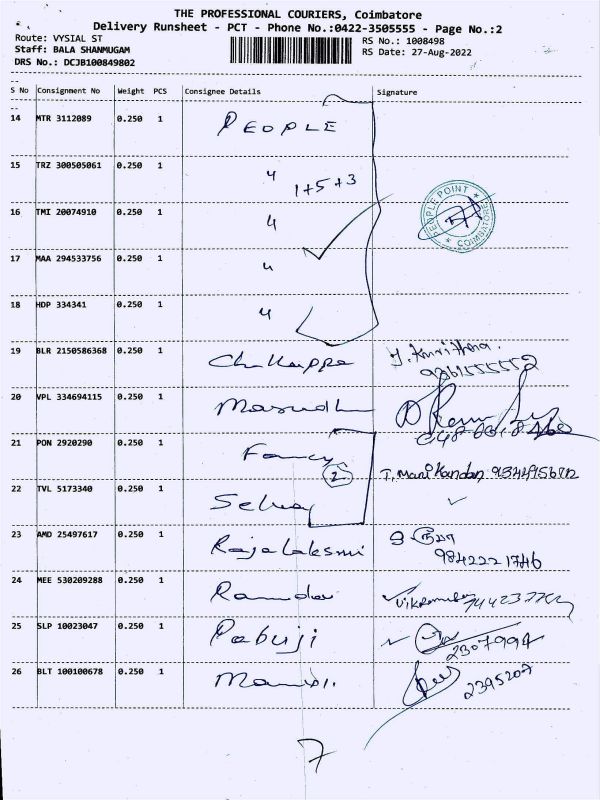 THE PROFESSIONAL COURIERS, Coimbatore
Delivery Runsheet - PCT - Phone No.:0422-3505555 - Page No.:2
Route: VYSIAL ST
RS No.: 1008498
Staff: BALA SHANMUGAM
RS Date: 27-Aug-2022
DRS No.: DCJB100849802
S No Consignment No Weight PCS Consignee Details Signature
14 MTR 3112089 0.250 1 PEOPLE
15 TRZ 300505061 0.250 1 " 1+5+3
16 TMI 20074910 0.250 1 "
PEOPLE POINT * COIMBATORE *
17 MAA 294533756 0.250 1 "
18 HDP 334341 0.250 1 "
19 BLR 2150586368 0.250 1
20 VPL 334694115 0.250 1
21 PON 2920290 0.250 1 Fancy
2 T. Manikandan
22 TVL 5173340 0.250 1 Selva
23 AMD 25497617 0.250 1 Rajalaksmi
9842221746
24 MEE 530209288 0.250 1 Ramdev
25 SLP 10023047 0.250 1 Pabuji
2307994
26 BLT 100100678 0.250 1
2395207
7